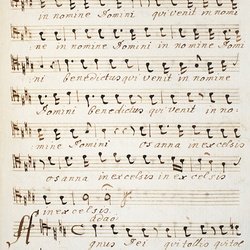 in nomine Domini qui venit in nomi
ne in nomine Domini in nomine Domi
ni benedictus qui venit in nomine
Domini benedictus qui venit in no:
mine Domini osanna in excelsis
osanna in excelsis in excelsis
in excelsis.
adagio
Agnus Dei qui tollis qui tol